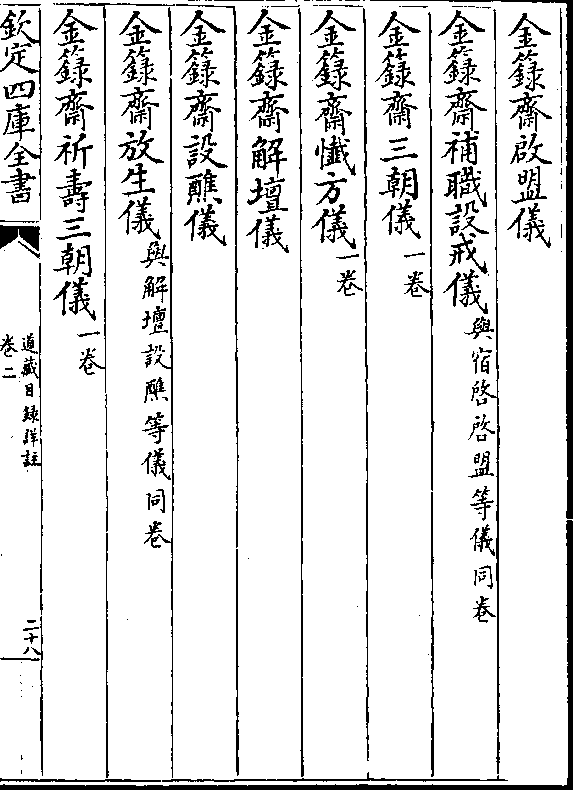 金籙齋啟盟儀
金籙齋補職設戒儀與宿啓啓盟等儀同卷
金籙齋三朝儀一卷
金籙齋懺方儀一卷
金籙齋解壇儀
金籙齋設醮儀
金籙齋放生儀與解壇設醮等儀同卷
金籙齋祈壽三朝儀一卷
欽定四庫全書
道藏目錄詳註
卷二
二十八